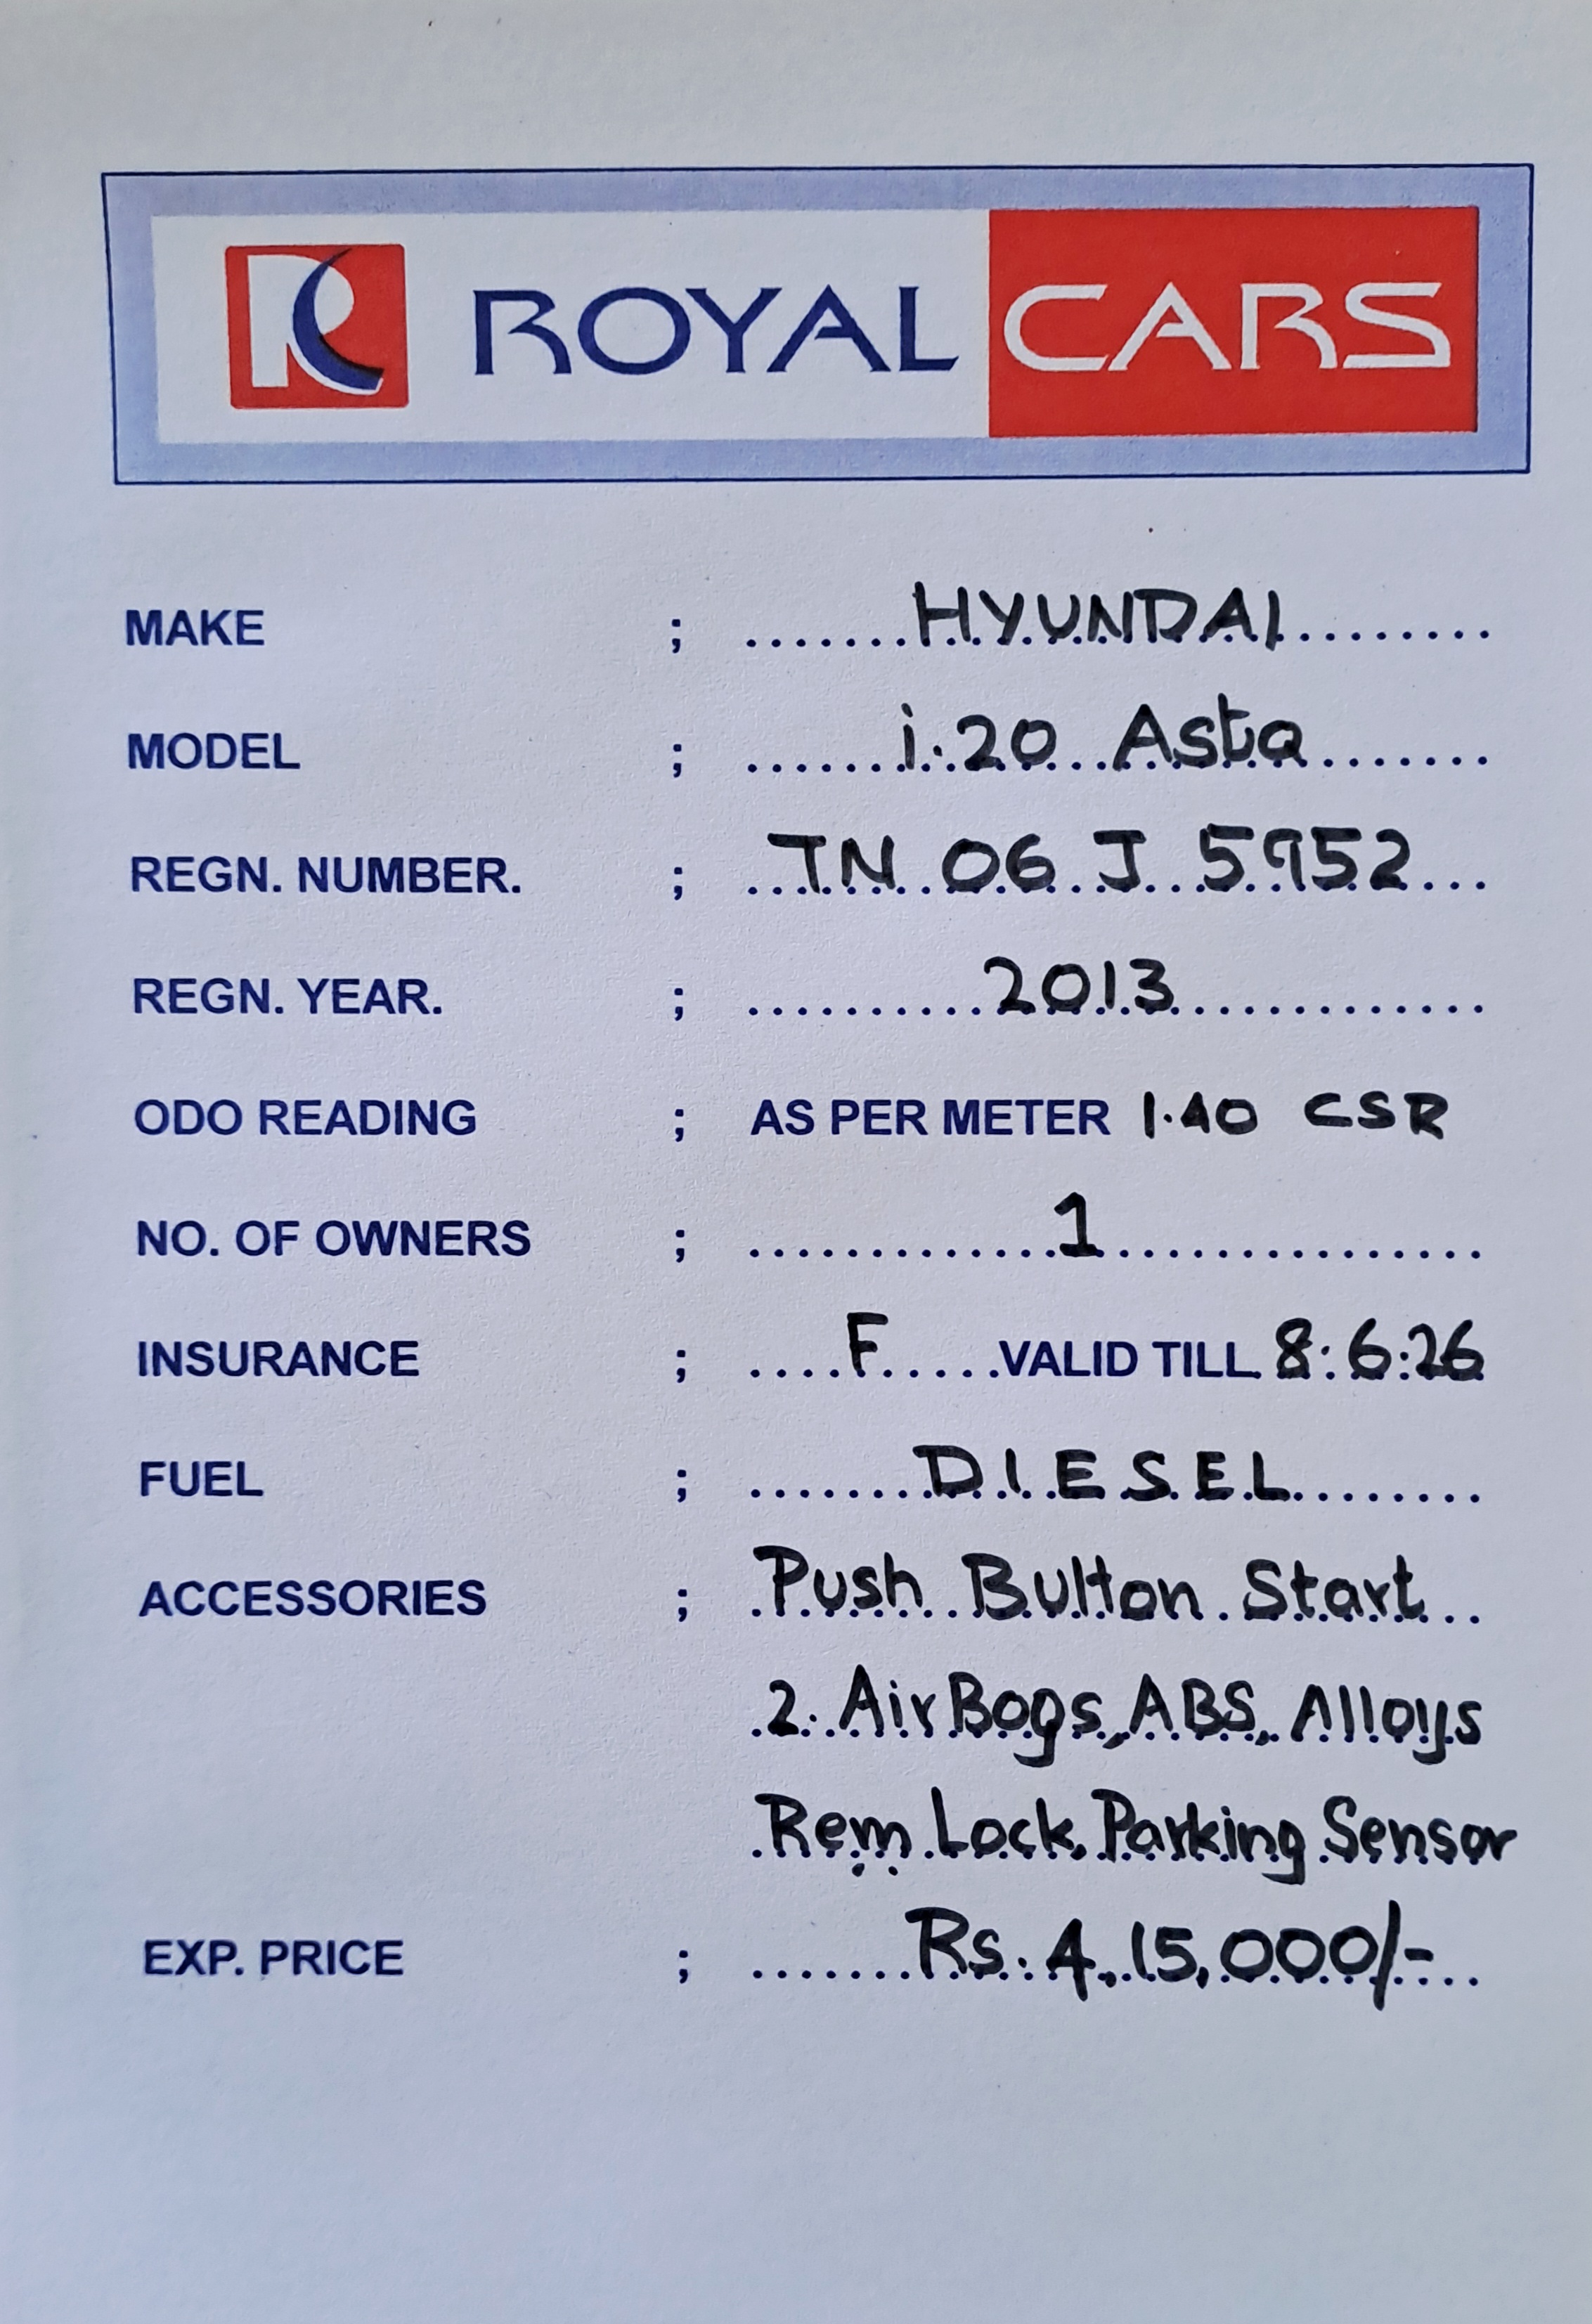 R ROYAL CARS
MAKE ; .......HYUNDAI........
MODEL ; ......i.20 Asta.......
REGN. NUMBER. ; TN 06 J 5952
REGN. YEAR. ; 2013
ODO READING ; AS PER METER 1.40 CSR
NO. OF OWNERS ; 1
INSURANCE ; F VALID TILL 8:6:26
FUEL ; DIESEL
ACCESSORIES ; Push Button Start
2. Air Bags, ABS, Alloys
Rem Lock, Parking Sensor
EXP. PRICE ; Rs. 4,15,000/-